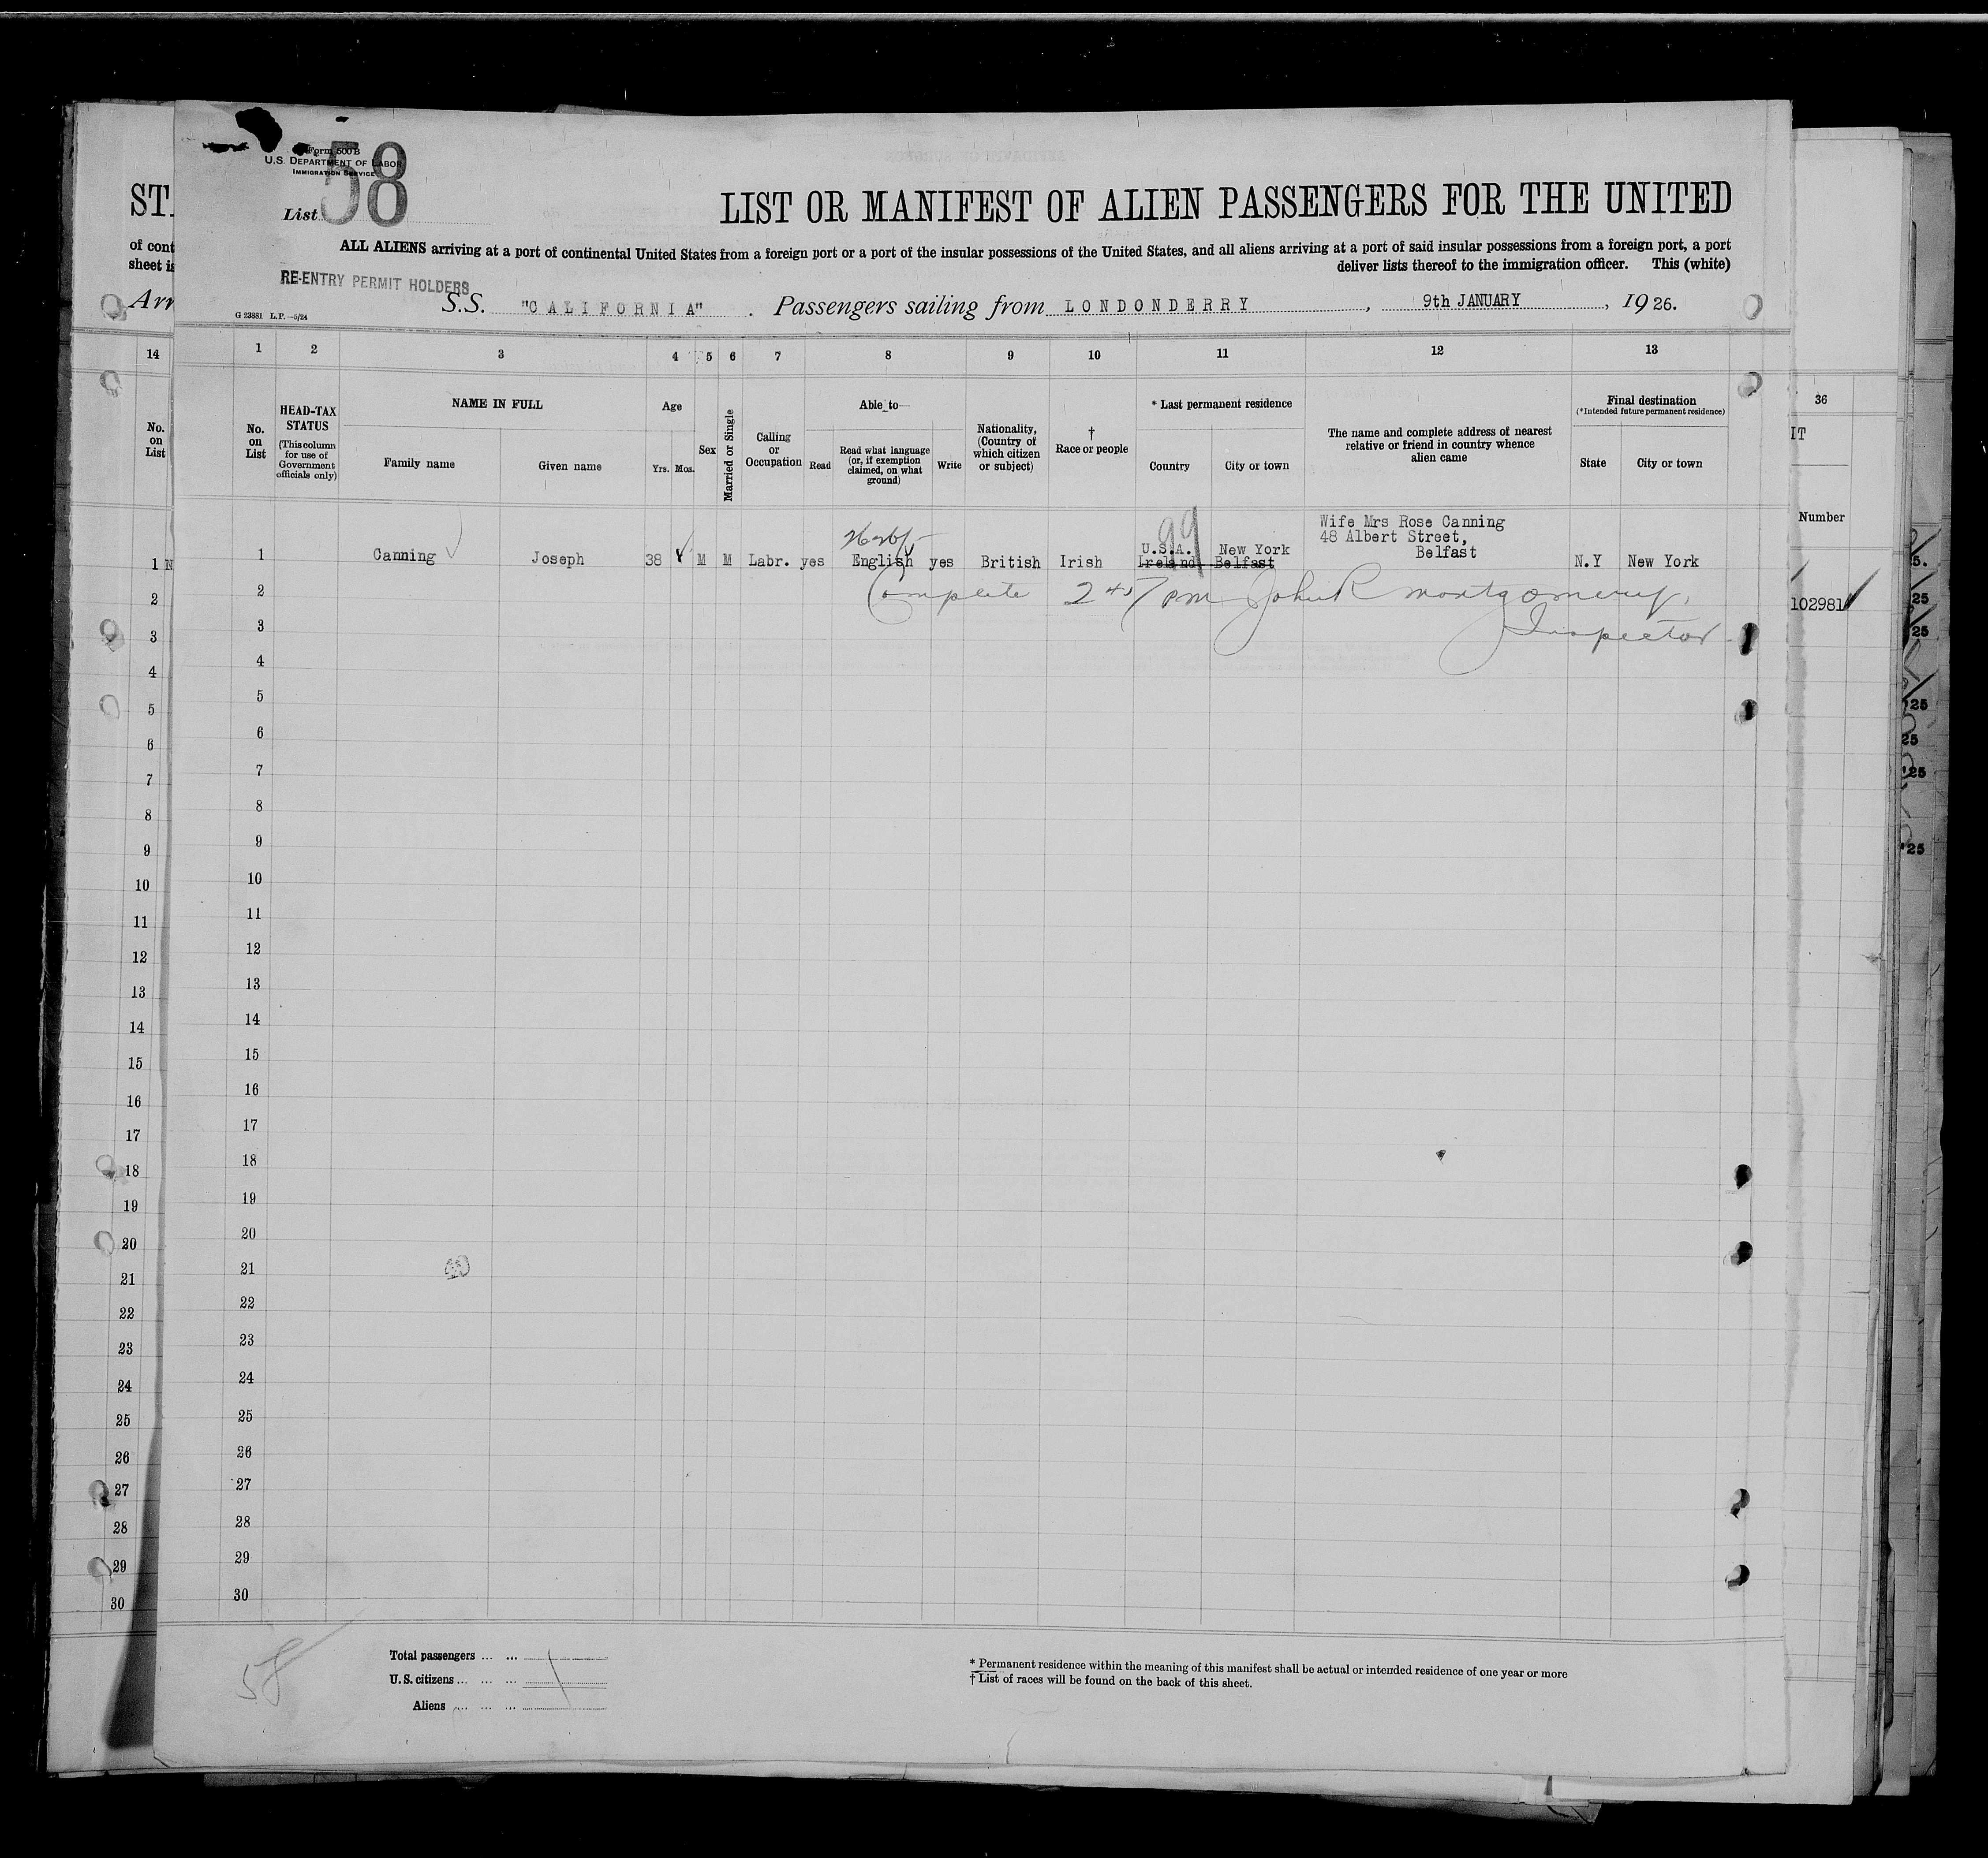 Form 500 B
U.S. DEPARTMENT OF LABOR
IMMIGRATION SERVICE
List 58
LIST OR MANIFEST OF ALIEN PASSENGERS FOR THE UNITED
ALL ALIENS arriving at a port of continental United States from a foreign port or a port of the insular possessions of the United States, and all aliens arriving at a port of said insular possessions from a foreign port, a port
deliver lists thereof to the immigration officer. This (white)
RE-ENTRY PERMIT HOLDERS
S.S. "CALIFORNIA" . Passengers sailing from LONDONDERRY , 9th JANUARY , 1926.
G 23881 L.P.—5/24
1 2 3 4 5 6 7 8 9 10 11 12 13
No. on List
HEAD-TAX STATUS
(This column for use of Government officials only)
NAME IN FULL
Family name
Given name
Age
Yrs. Mos.
Sex
Married or Single
Calling or Occupation
Able to—
Read
Read what language (or, if exemption claimed, on what ground)
Write
Nationality, (Country of which citizen or subject)
† Race or people
* Last permanent residence
Country
City or town
The name and complete address of nearest relative or friend in country whence alien came
Final destination
(*Intended future permanent residence)
State
City or town
99
Wife Mrs Rose Canning
48 Albert Street,
Belfast
U.S.A. New York
1 Canning Joseph 38 M M Labr. yes English yes British Irish Ireland Belfast N.Y New York
2 Complete 2 45 pm John R Montgomery,
3 Inspector
4
5
6
7
8
9
10
11
12
13
14
15
16
17
18
19
20
21
22
23
24
25
26
27
28
29
30
58
Total passengers ... ...
U.S. citizens ... ... ...
Aliens ... ... ...
* Permanent residence within the meaning of this manifest shall be actual or intended residence of one year or more
† List of races will be found on the back of this sheet.
ST
of cont
sheet is
Arr
14
No. on List
1 N
2
3
4
5
6
7
8
9
10
11
12
13
14
15
16
17
18
19
20
21
22
23
24
25
26
27
28
29
30
36
IT
Number
102981
5.
25
25
25
25
'25
'25